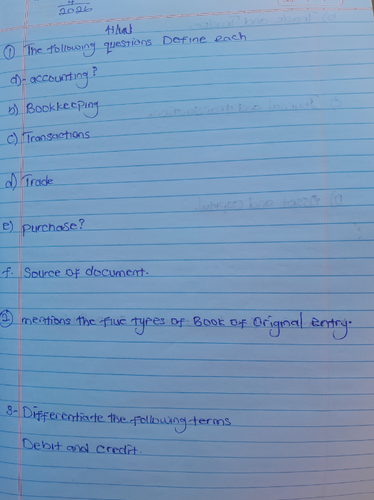 4
2026
① The following questions Define each
a)- accounting?
b) Bookkeeping
c) Transactions
d) Trade
e) purchase?
f. Source of document.
② mentions the five types of Book of Original Entry.
3- Differentiate the following terms
Debit and credit.